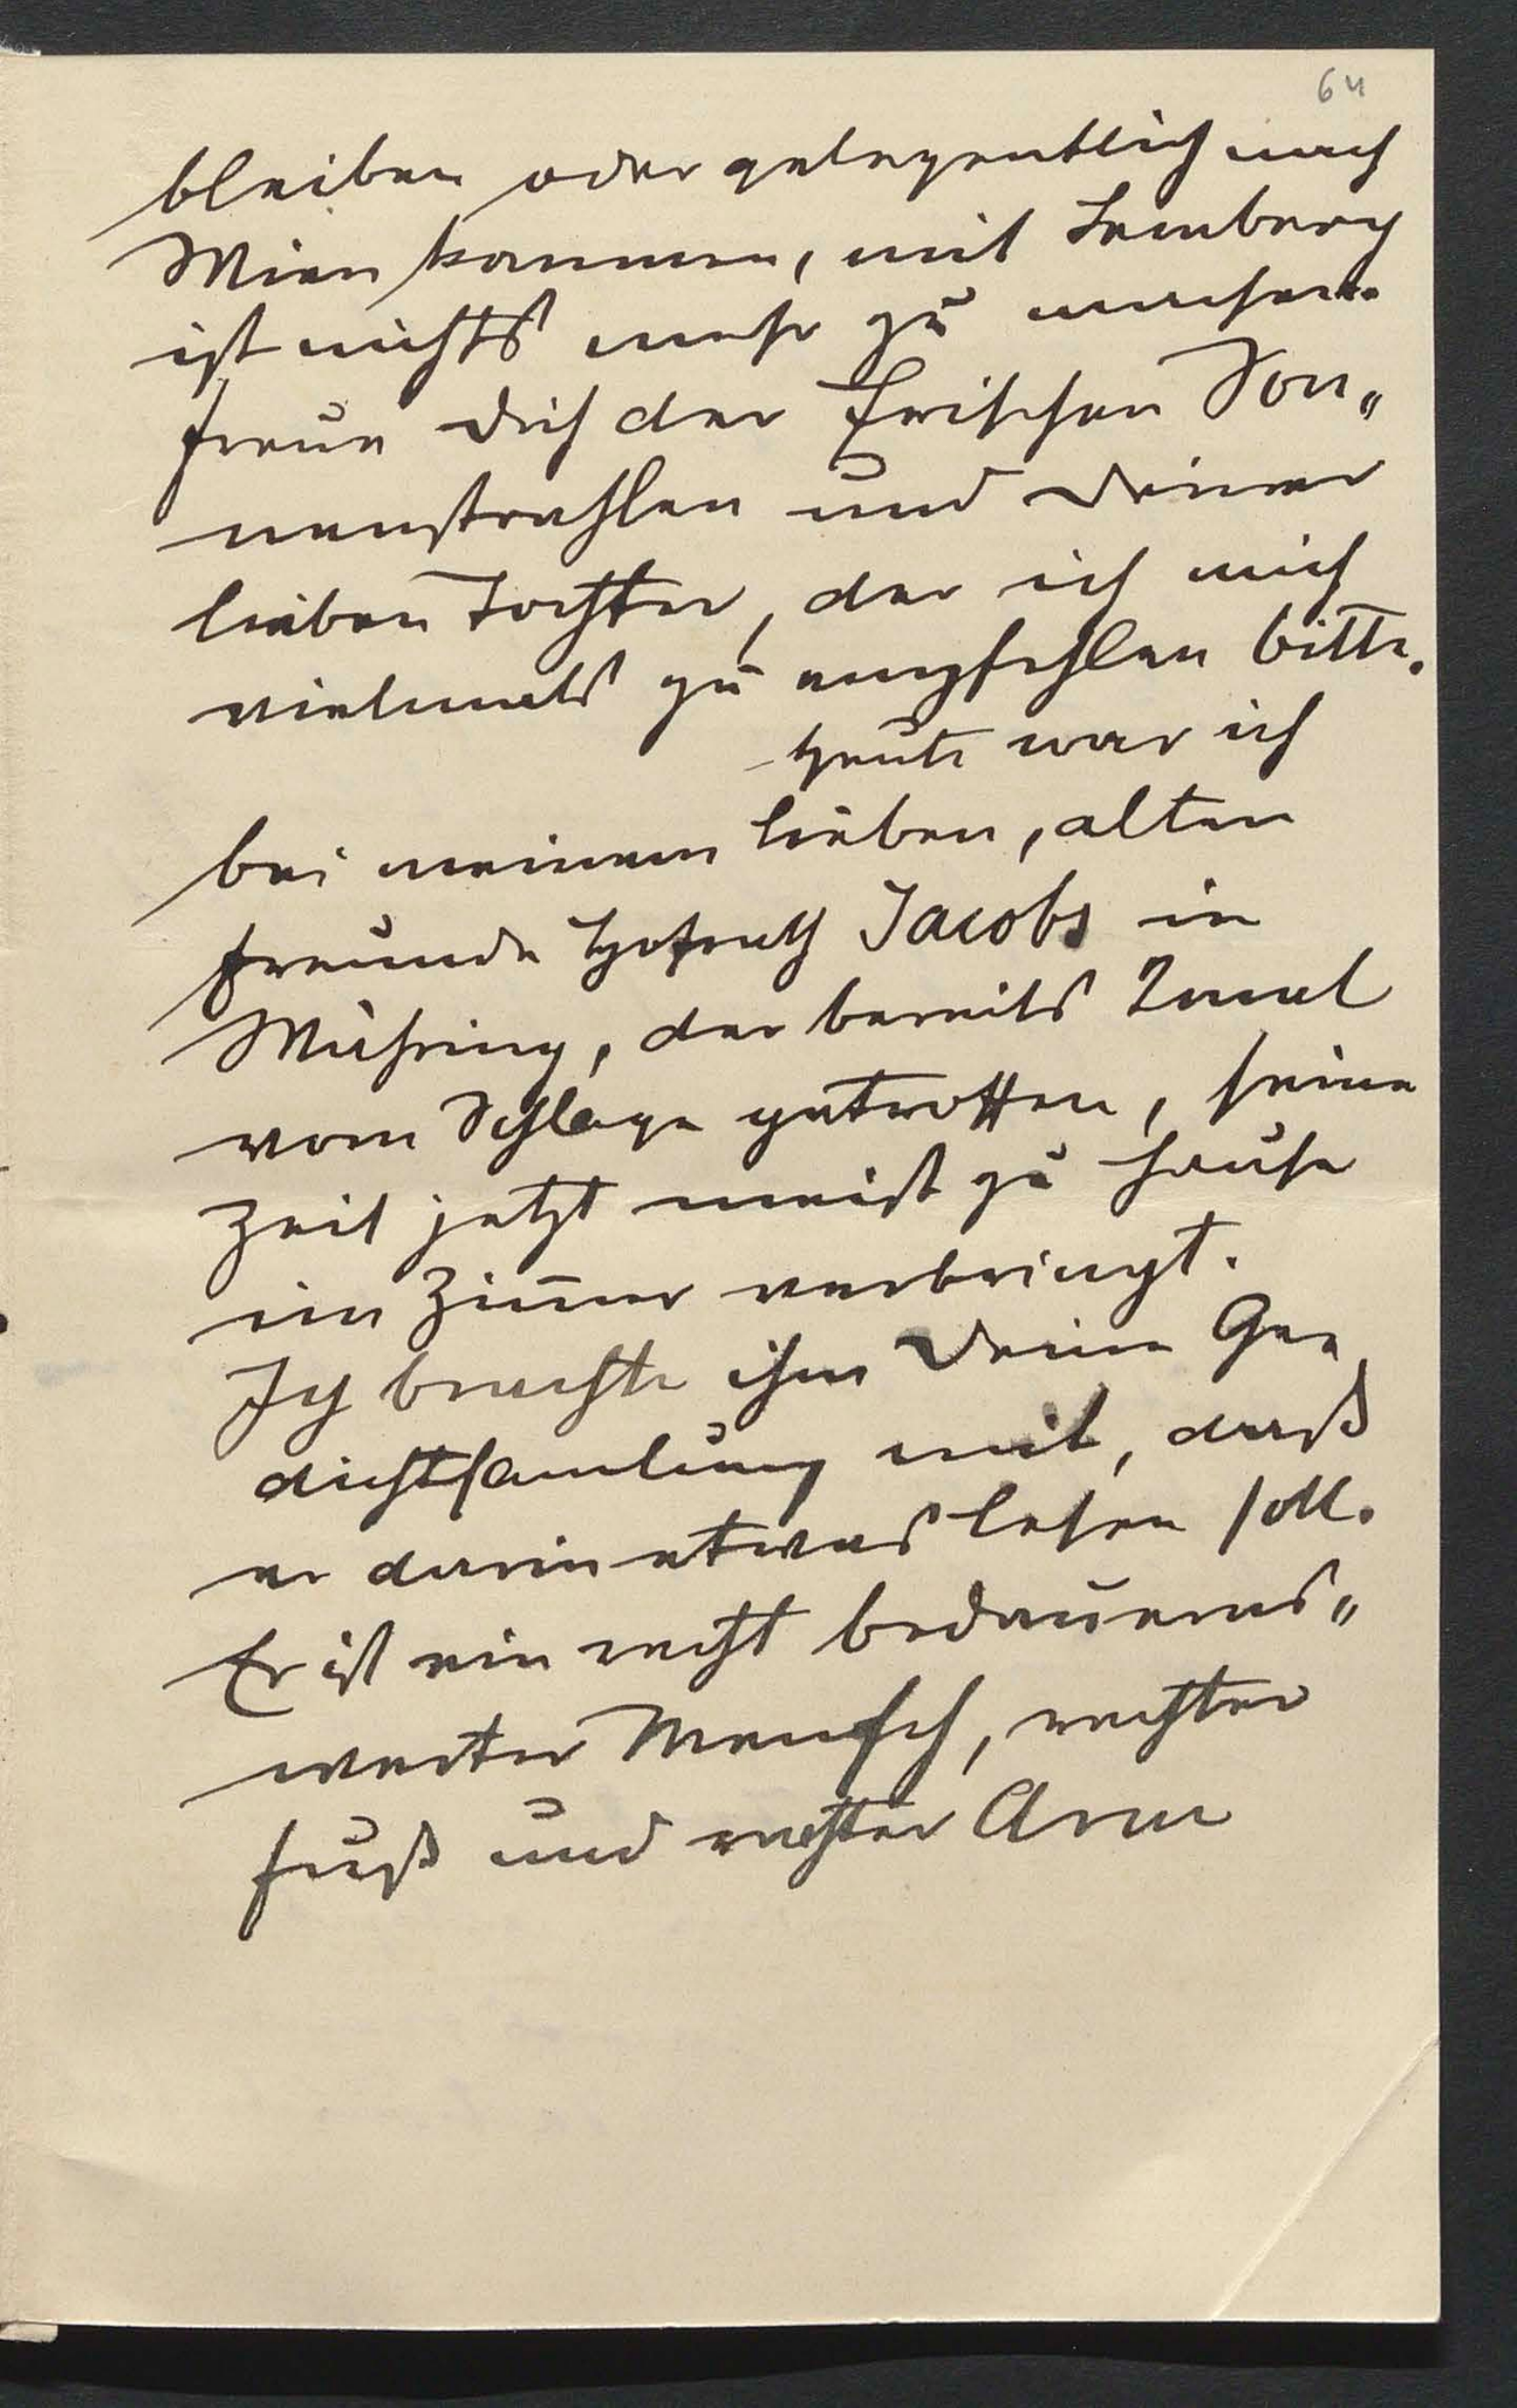 64
bleiben oder gelegentlich nach
Wien kommen, mit Lemberg
ist nichts mehr zu machen.
Freue Dich der frischen Son„
nenstrahlen und Deiner
lieben Tochter, der ich mich
vielmals zu empfehlen bitte.
Heute war ich
bei meinem lieben, alten
Freunde Hofrath Jacobs in
Währing, der bereits 2mal
vom Schlage getroffen, seine
Zeit jetzt meist zu Hause
im Zim̅er verbringt.
Ich brachte ihm Deine Ge„
dichtsam̅lung mit, daß
er darin etwas lesen soll.
Er ist ein recht bedauerns„
werter Mensch, rechter
Fuß und rechter Arm